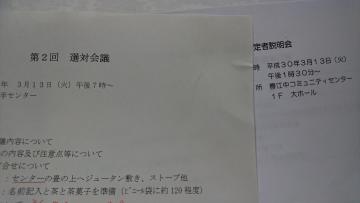 第２回　選対会議
年　３月１３日（火）午後７時～
センター
議内容について
の内容及び注意点等について
合せについて
：センターの畳の上へジュータン敷き、ストーブ他
：名前記入と茶と茶菓子を準備（ﾋﾞﾆｰﾙ袋に約120程度）
定者説明会
時　平成３０年３月１３日（火）
午後１時３０分～
所　豊江中コミュニティセンター
１Ｆ　大ホール